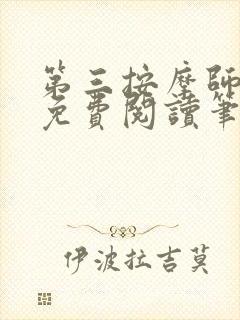 第三按摩師
免費閱讀筆
伊波拉吉莫